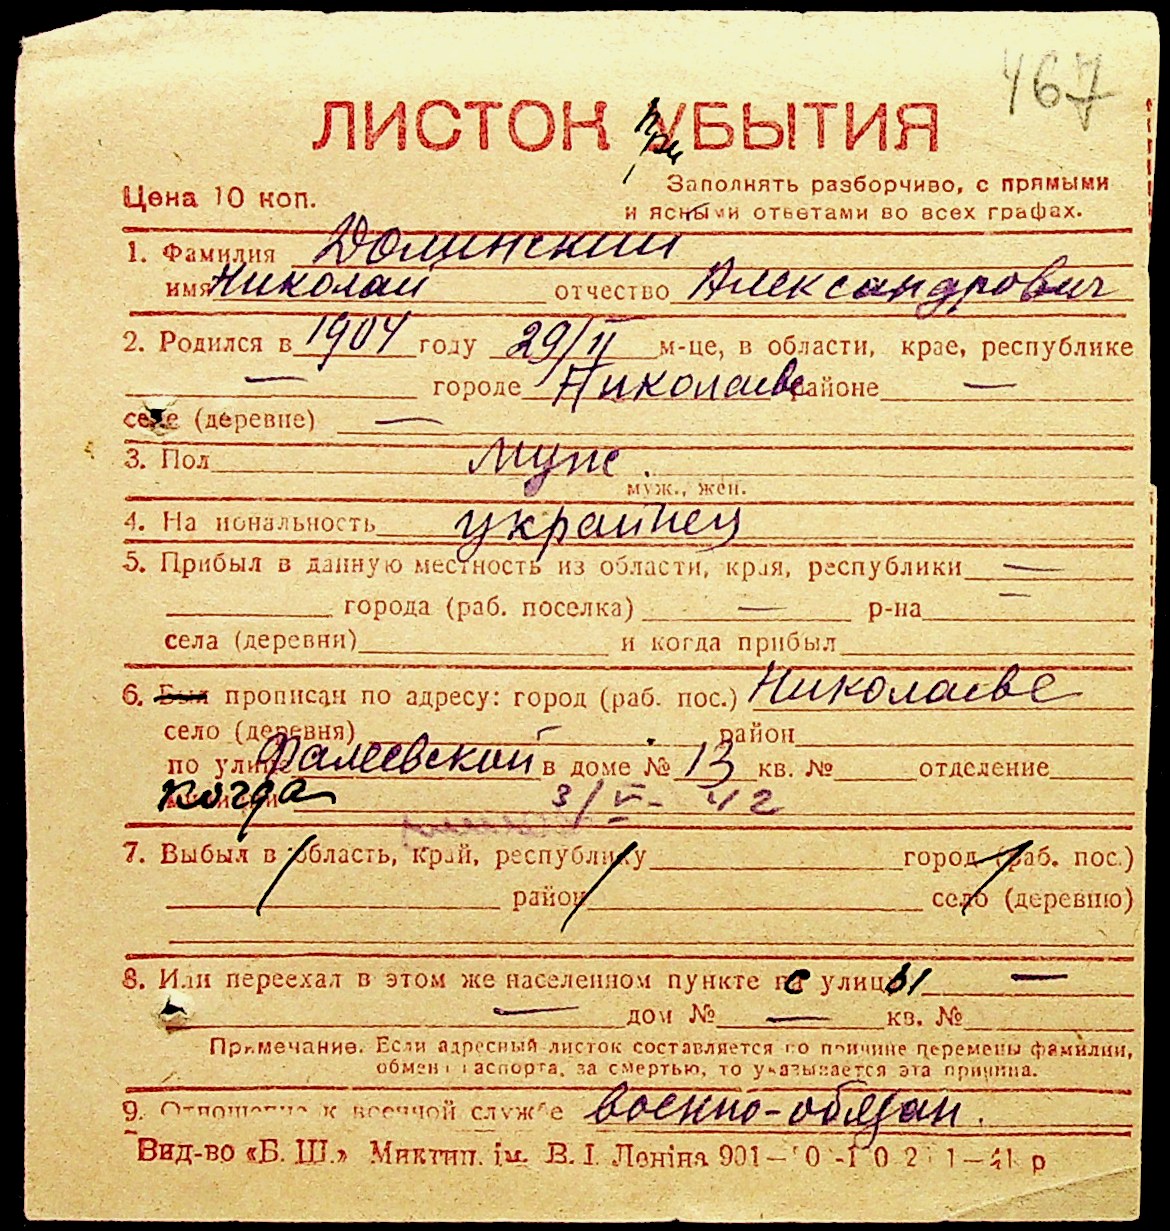 467
ЛИСТОК при УБЫТИЯ
Цена 10 коп.
Заполнять разборчиво, с прямыми
и ясными ответами во всех графах.
1. Фамилия Долинский
имя Николай отчество Александрович
2. Родился в 1904 году 29/II м-це, в области, крае, республике
— городе Николаеве районе —
селе (деревне) —
3. Пол муж.
муж., жен.
4. Национальность украинец
5. Прибыл в данную местность из области, края, республики —
города (раб. поселка) — р-на —
села (деревни) и когда прибыл
6. Был прописан по адресу: город (раб. пос.) Николаеве
село (деревня) район
по улице Фалеевской в доме № 13 кв. № отделение
когда 3/V - 42
7. Выбыл в область, край, республику город (раб. пос.)
район село (деревню)
8. Или переехал в этом же населенном пункте с улицы —
— дом № — кв. №
Примечание. Если адресный листок составляется по причине перемены фамилии,
обмена паспорта, за смертью, то указывается эта причина.
9. Отношение к военной службе военно-обязан.
Вид-во «Б. Ш.» Миктип. ім. В. І. Леніна 901—